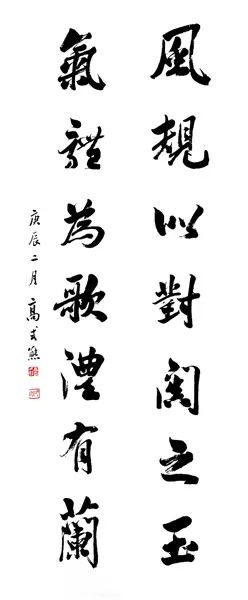 風規以對之玉
氣體為歌澧有蘭
庚辰二月高式熊